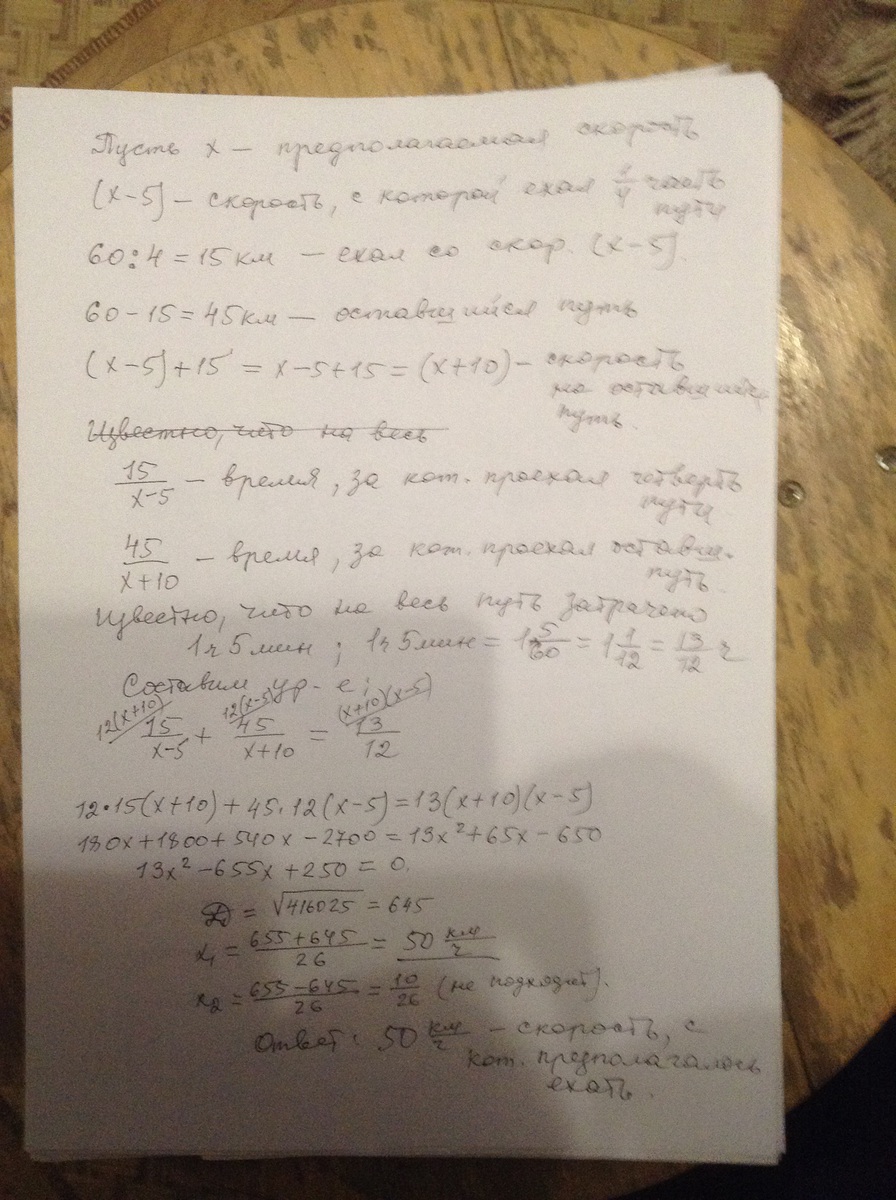 Пусть x — предполагаемая скорость
(x-5) – скорость, с которой ехал 1/4 часть
пути
60:4=15км — ехал со скор. (x-5).
60-15=45км — оставшийся путь
(x-5)+15 = x-5+15 = (x+10) – скорость
на оставшийся
путь.
Известно, что на весь
15/(x-5) – время, за кот. проехал четверть
пути
45/(x+10) – время, за кот. проехал оставш.
путь.
Известно, что на весь путь затрачено
1ч 5мин ; 1ч 5мин = 1 5/60 = 1 1/12 = 13/12 ч
Составим ур-е:
12(x+10) 12(x-5) (x+10)(x-5)
15/(x-5) + 45/(x+10) = 13/12
12·15(x+10)+45·12(x-5)=13(x+10)(x-5)
180x+1800+540x-2700=13x²+65x-650
13x²-655x+250=0.
D = √416025 = 645
x₁ = (655+645)/26 = 50 км/ч
x₂ = (655-645)/26 = 10/26 (не подходит).
Ответ: 50 км/ч – скорость, с
кот. предполагалось
ехать.